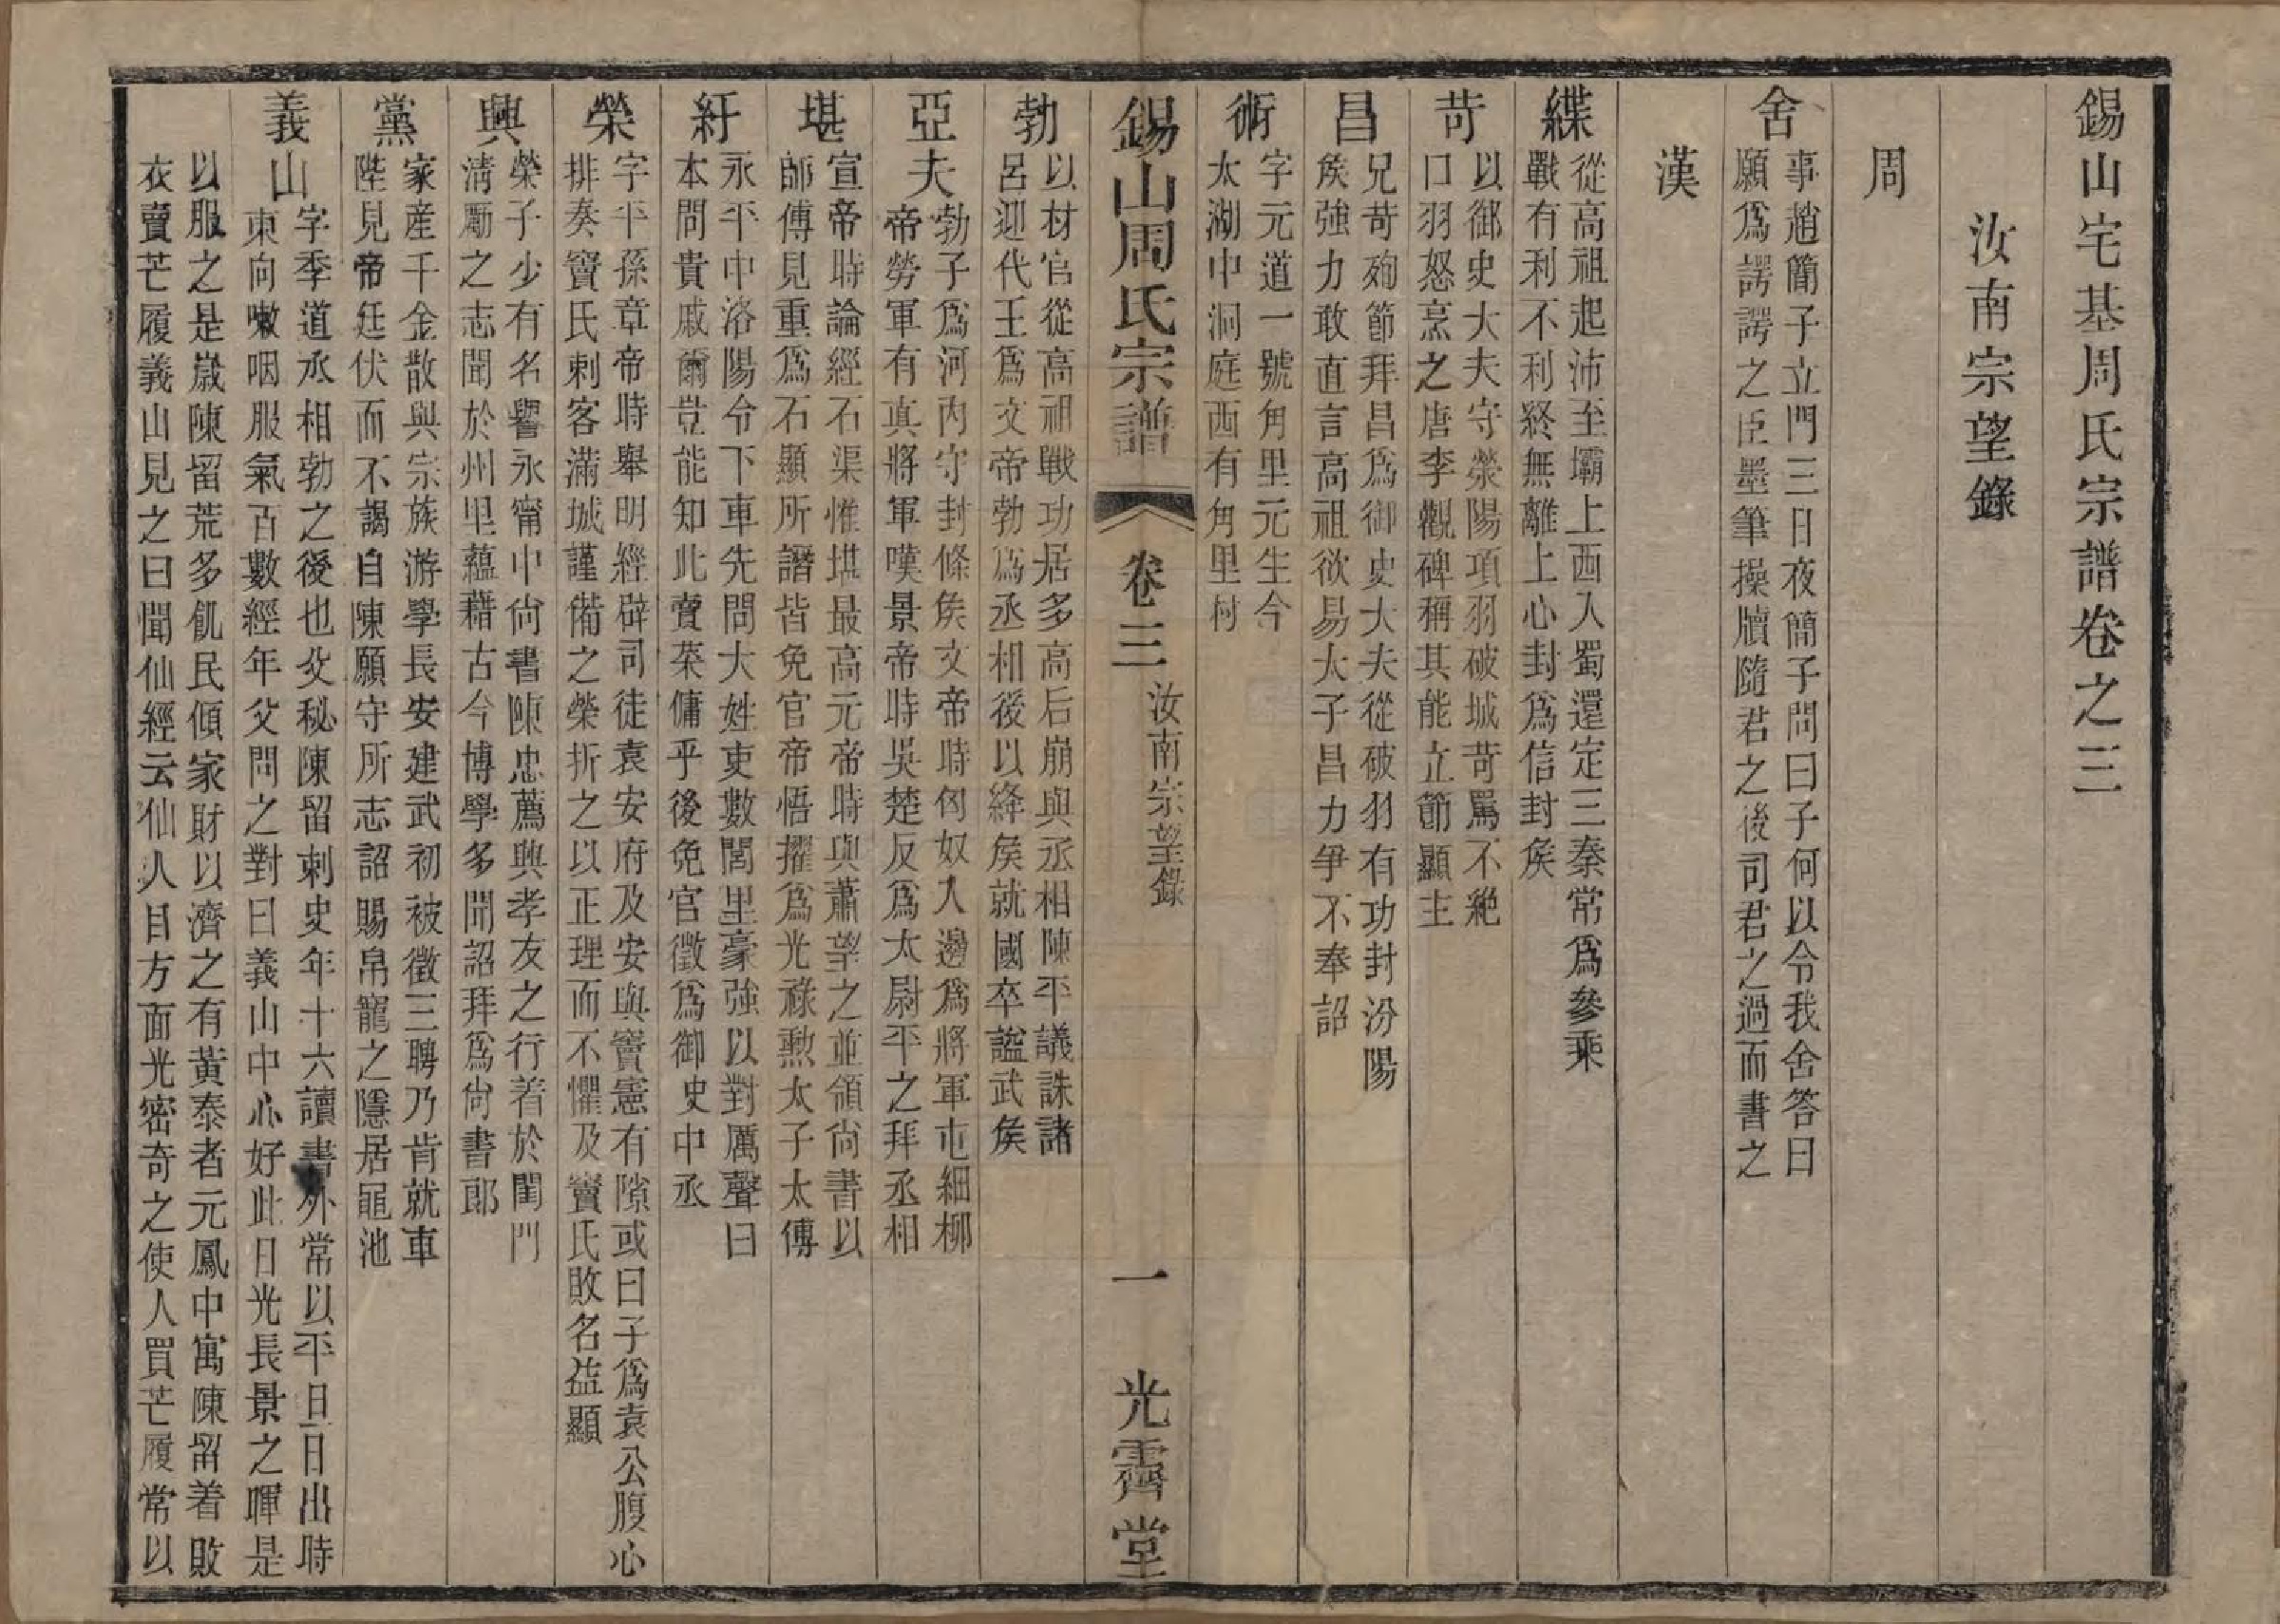 錫山宅基周氏宗譜卷之三
汝南宗望錄
周
舍
事趙簡子立門三日夜簡子問曰子何以令我舍答曰
願爲諤諤之臣墨筆操牘隨君之後司君之過而書之
漢
緤
從高祖起沛至壩上西入蜀還定三秦常爲參乘
戰有利不利終無離上心封爲信封矦
苛
以御史大夫守滎陽項羽破城苛罵不絶
口羽怒烹之唐李觀碑稱其能立節顯主
昌
兄苛殉節拜昌爲御史大夫從破羽有功封汾陽
矦強力敢直言高祖欲易太子昌力爭不奉詔
術
字元道一號角里元生今
太湖中洞庭西有角里村
錫山周氏宗譜 卷三 汝南宗望錄 一 光霽堂
勃
以材官從高祖戰功居多高后崩與丞相陳平議誅諸
呂迎代王爲文帝勃爲丞相後以絳矦就國卒謚武矦
亞夫
勃子爲河內守封條矦文帝時匈奴入邊爲將軍屯細柳
帝勞軍有真將軍嘆景帝時吳楚反爲太尉平之拜丞相
堪
宣帝時論經石渠惟堪最高元帝時與蕭望之並領尙書以
師傅見重爲石顯所譖皆免官帝悟擢爲光祿勲太子太傅
紆
永平中洛陽令下車先問大姓吏數閭里豪強以對厲聲曰
本問貴戚爾豈能知此賣菜傭乎後免官徵爲御史中丞
榮
字平孫章帝時舉明經辟司徒袁安府及安與竇憲有隙或曰子爲袁公腹心
排奏竇氏刺客滿城謹備之榮折之以正理而不懼及竇氏敗名益顯
興
榮子少有名譽永甯中尙書陳忠薦興孝友之行着於閨門
淸勵之志聞於州里蘊藉古今博學多聞詔拜爲尙書郞
黨
家産千金散與宗族游學長安建武初被徵三聘乃肯就車
陛見帝廷伏而不謁自陳願守所志詔賜帛寵之隱居黽池
義山
字季道丞相勃之後也父秘陳留刺史年十六讀書外常以平旦日出時
東向嗽咽服氣百數經年父問之對曰義山中心好此日光長景之暉是
以服之是歲陳留荒多飢民傾家財以濟之有黃泰者元鳳中寓陳留着敗
衣賣芒履義山見之曰聞仙經云仙人目方面光密奇之使人買芒履常以